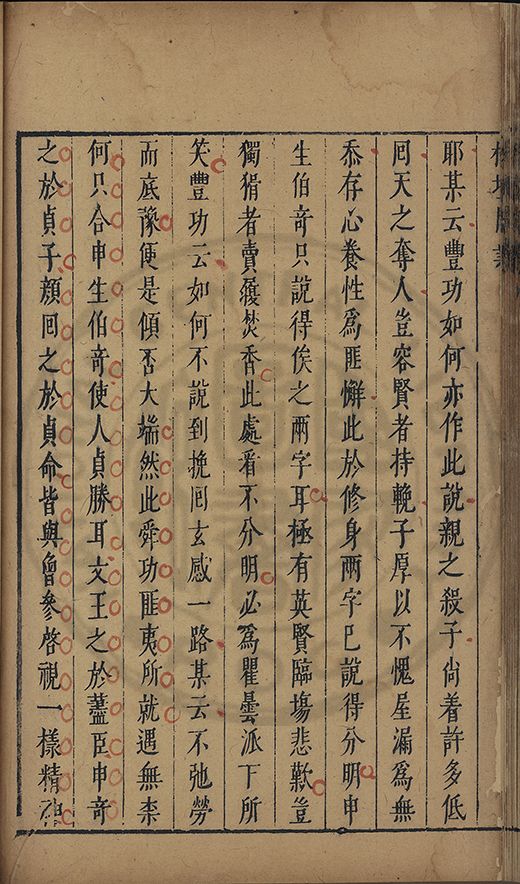 耶某云豐功如何亦作此說親之殺子尚着許多低
囘天之奪人豈容賢者持輓子厚以不愧屋漏為無
忝存心養性為匪懈此於修身兩字已說得分明申
生伯竒只說得俟之兩字耳極有英賢臨塲悲歎豈
獨狷者賣履焚香此處看不分明必為瞿曇派下所
笑豐功云如何不說到挽囘玄感一路某云不弛勞
而底豫便是傾否大端然此舜功匪夷所就遇無柰
何只合申生伯竒使人貞勝耳文王之於藎臣申竒
之於貞子顏囘之於貞命皆與曾參啓視一樣精神